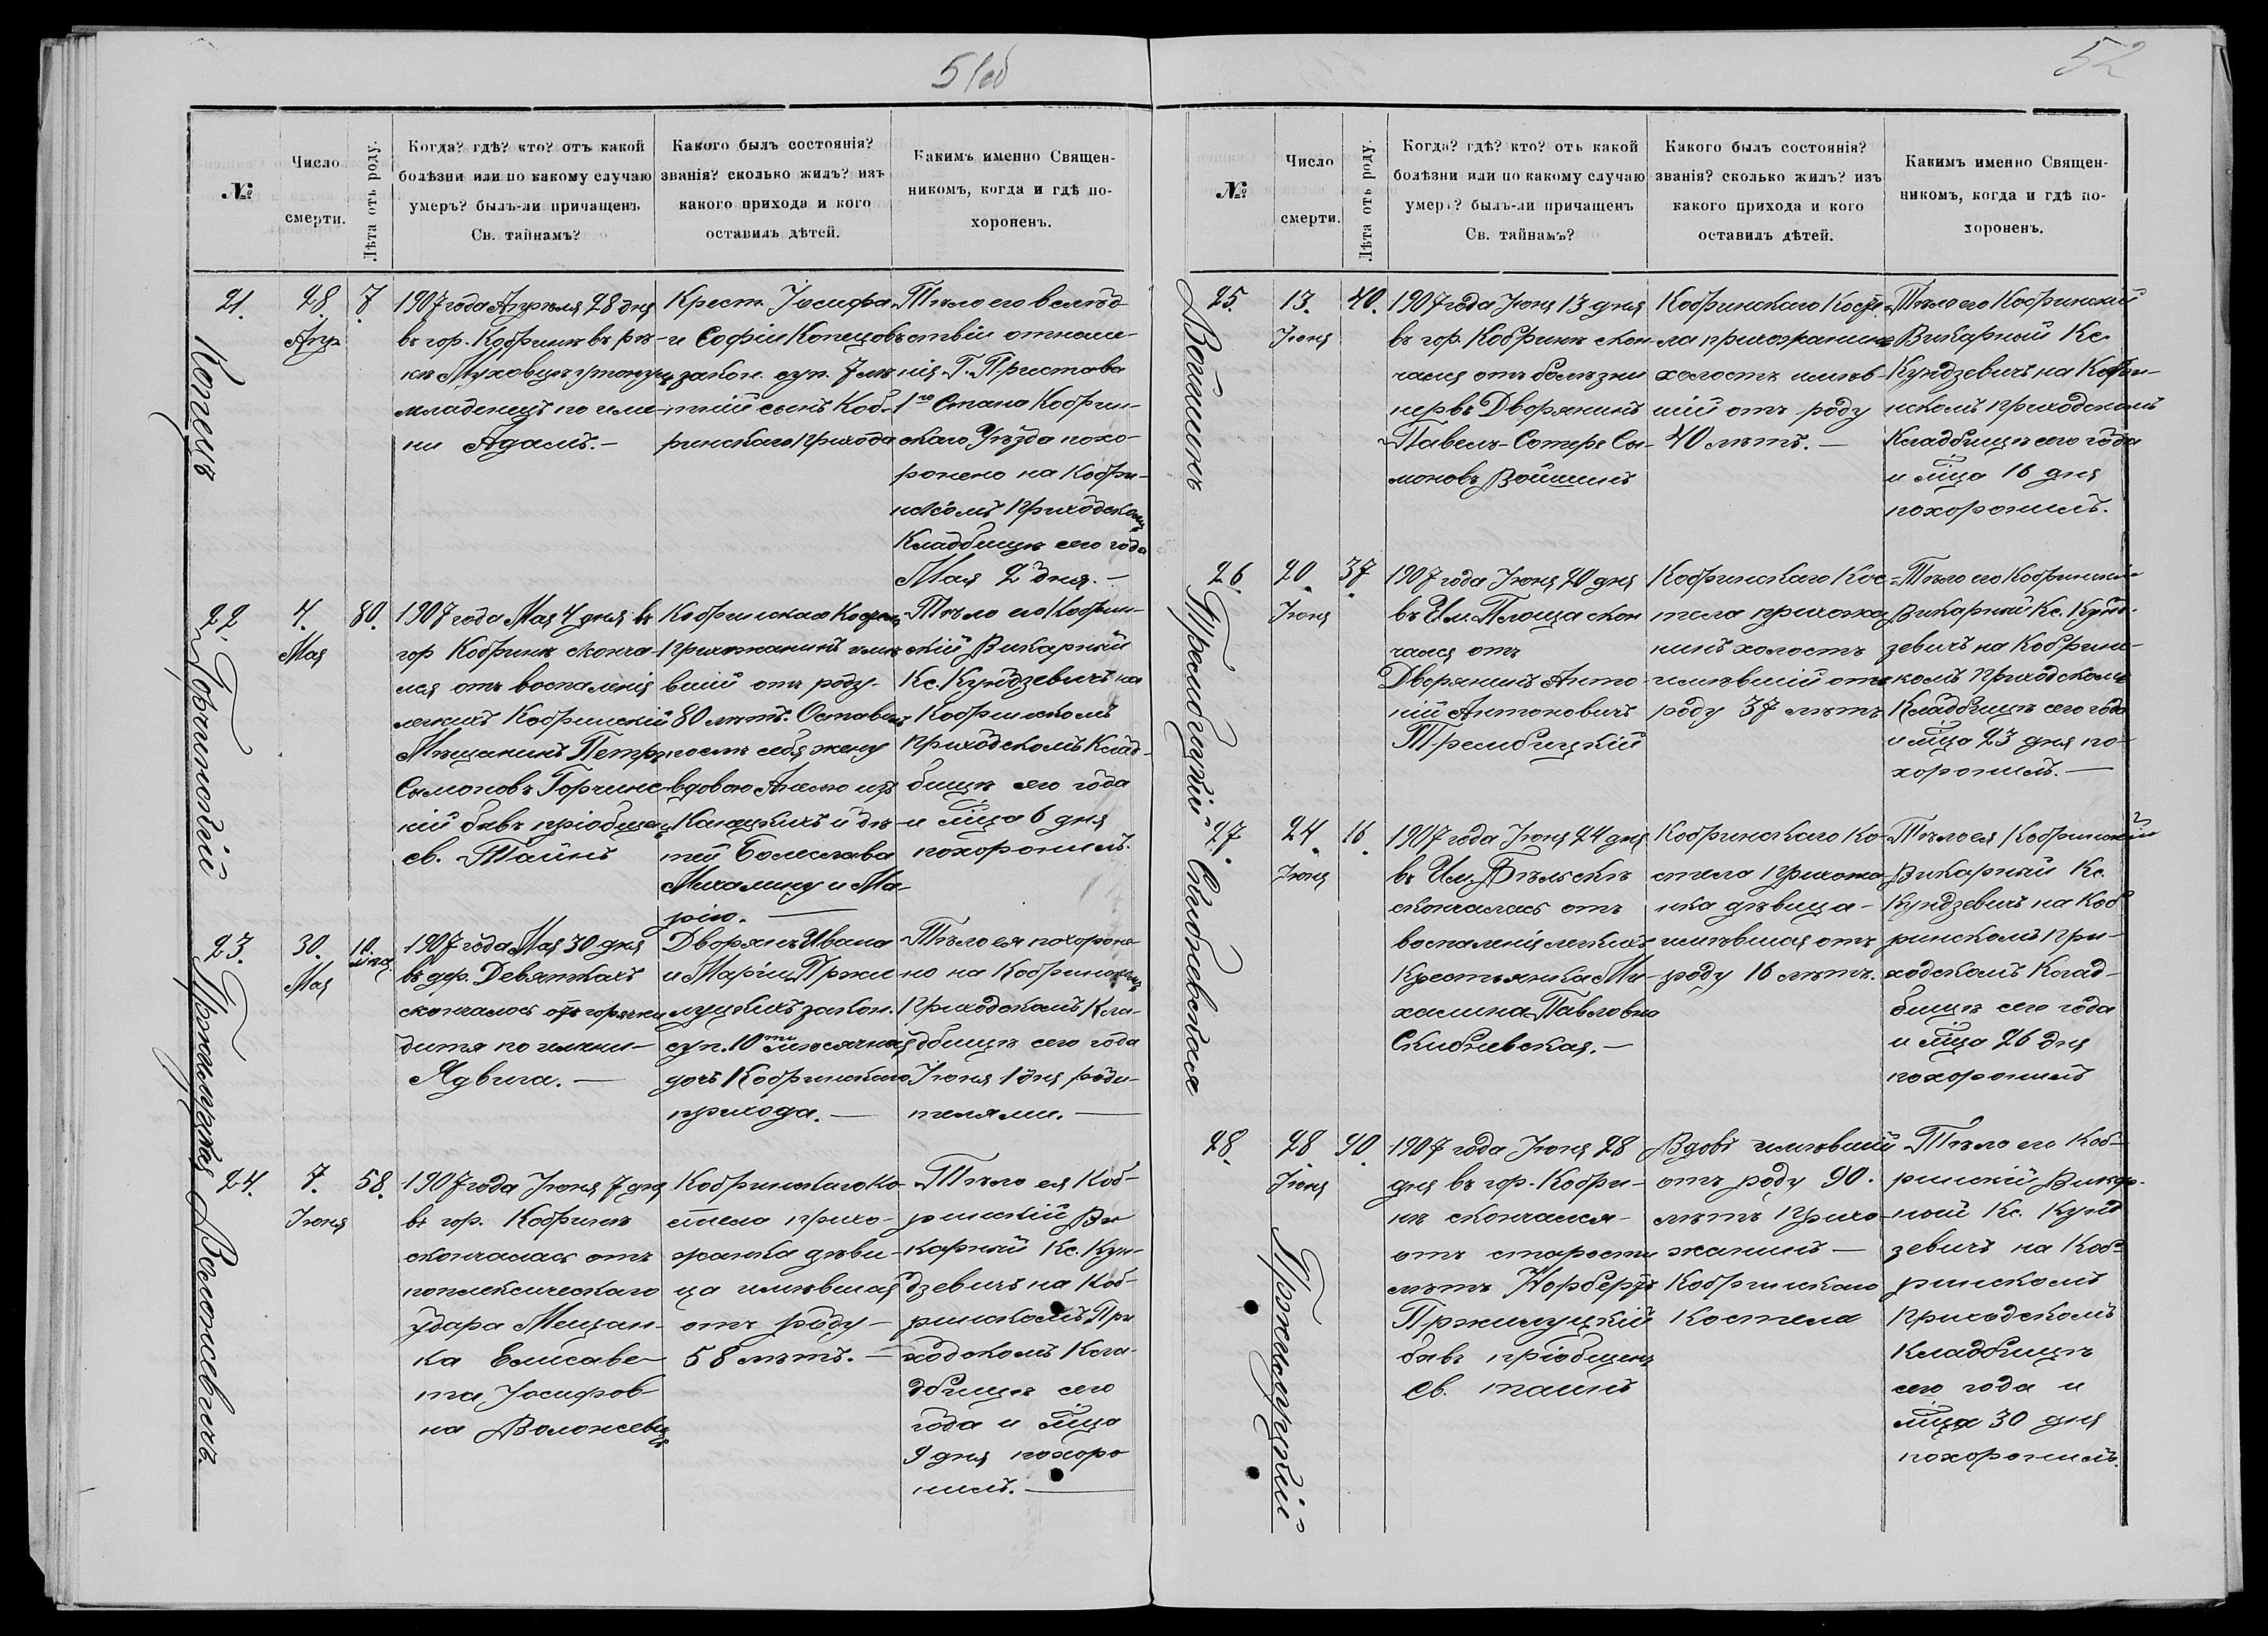 51об
№
Число
смерти.
Лѣта отъ роду.
Когда? гдѣ? кто? отъ какой
болѣзни или по какому случаю
умеръ? былъ-ли причащенъ
Св. тайнамъ?
Какого былъ состоянія?
званія? сколько жилъ? изъ
какого прихода и кого
оставилъ дѣтей.
Какимъ именно Священ-
никомъ, когда и гдѣ по-
хороненъ.
21.
28.
Апр
7.
1907 года Апрѣля 28 дня
въ гор. Кобринѣ въ рѣ-
кѣ Муховцѣ утонулъ
младенецъ по име-
ни Адамъ.—
Крест. Іосифа
и Софіи Копецовъ
закон. суп. 7 лѣ
тній сынъ Коб-
ринскаго прихода
Тѣло его вслѣд-
ствіи отноше-
нія Г. Пристава
1го Стана Кобрин-
скаго Уѣзда похо-
ронено на Кобри-
нскомъ приходскомъ
Кладбищѣ сего года
Мая 2 дня.—
Копецъ
22.
4.
Мая
80.
1907 года Мая 4 дня въ
гор Кобринѣ сконча-
лся отъ воспаленія
легкихъ Кобринскій
Мѣщанинъ Петръ
Сымоновъ Горчинс-
кій бывъ пріобщенъ
св. Таинъ
Кобринскаго Костела
прихожанинъ имѣ
вшій отъ роду
80 лѣтъ. Оставилъ
постъ себя жену
вдовою Анелю изъ
и дѣ-
тей Болеслава
Михалину и Ма-
рію. —
Тѣло его Кобрин-
скій Викарный
Кс. Кундзевичъ на
Кобринскомъ
приходскомъ Клад-
бищѣ сего года
и м͠ца 6 дня
похоронилъ.
Горчинскій
23.
30.
Мая
10.
м͠ца
1907 года Мая 30 дня
въ дер. Девяткахъ
скончалось отъ горячки
дитя по имени—
Ядвига.—
Дворянъ Ивана
и Маріи Пржи
луцкихъ закон.
суп. 10ти мѣсячная
дочь Кобринскаго
прихода.—
Тѣло ея похороне-
но на Кобринскомъ
Приходскомъ Кла-
дбищѣ сего года
Іюня 1 дня роди-
телями.—
Пржилуцкая
24.
7.
Іюня
58.
1907 года Іюня 7 дня
въ гор. Кобринѣ
скончалась отъ
поплексическаго
удара Мещан-
ка Елисаве-
та Іосифов-
на Волонсевичъ
Кобринскаго Ко-
стела прихо-
жанка дѣви-
ца имѣвшая
отъ роду—
58 лѣтъ.—
Тѣло ея Коб-
ринскій Ви
карный Кс. Кун-
дзевичъ на Коб-
ринскомъ При
ходскомъ Кла-
дбищѣ сего
года и м͠ца
9 дня похоро
нилъ.—
Волонсевичъ.
52
№
Число
смерти.
Лѣта отъ роду.
Когда? гдѣ? кто? отъ какой
болѣзни или по какому случаю
умеръ? былъ-ли причащенъ
Св. тайнамъ?
Какого былъ состоянія?
званія? сколько жилъ? изъ
какого прихода и кого
оставилъ дѣтей.
Какимъ именно Священ-
никомъ, когда и гдѣ по-
хороненъ.
25.
13.
Іюня
40.
1907 года Іюня 13 дня
въ гор. Кобринѣ скон-
чался отъ болѣзни
нервъ Дворянинъ
Павелъ-Сотеръ Сы-
моновъ Войшинъ
Кобринскаго Косте-
ла прихожанинъ
холостъ имѣв-
шій отъ роду
40 лѣтъ.—
Тѣло его Кобринскій
Викарный Кс.
Кундзевичъ на Кобри-
нскомъ приходскомъ
Кладбищѣ сего года
и м͠ца 16 дня
похоронилъ.
Войшинъ
26.
20.
Іюня
37.
1907 года Іюня 20 дня
въ Им. Площа скон
чался отъ
Дворянинъ Анто-
ній Антоновичъ
Трембицкій
Кобринскаго Кос-
тела прихожа
нинъ холостъ
имѣвшій отъ
роду 37 лѣтъ
Тѣло его Кобринскій
Викарный Кс. Кунд-
зевичъ на Кобринс-
комъ приходскомъ
Кладбищѣ сего года
и м͠ца 23 дня по-
хоронилъ.—
Трембицкій
27.
24.
Іюня
16.
1907 года Іюня 24 дня
въ Им. Бѣльскѣ
скончалась отъ
воспаленія легкихъ
Крестьянка Ми-
халина Павловна
Скибневская.—
Кобринскаго Ко-
стела прихожа-
нка дѣвица—
имѣвшая отъ
роду 16 лѣтъ.
Тѣло ея Кобринскій
Викарный Кс.
Кундзевичъ на Коб
ринскомъ При-
ходскомъ Клад-
бищѣ сего года
и м͠ца 26 дня
похоронилъ
Скибневская
28.
28
Іюня
90.
1907 года Іюня 28
дня въ гор. Кобри-
нѣ скончался
отъ старости
лѣтъ Норбертъ
Пржилуцкій
бывъ пріобщенъ
св. таинъ
Вдовъ имѣвшій
отъ роду 90.
лѣтъ прихо-
жанинъ—
Кобринскаго
Костела
Тѣло его Коб-
ринскій Викар-
ный Кс. Кунд
зевичъ на Коб-
ринскомъ
приходскомъ
Кладбищѣ
сего года и
м͠ца 30 дня
похоронилъ.
Пржилуцкій